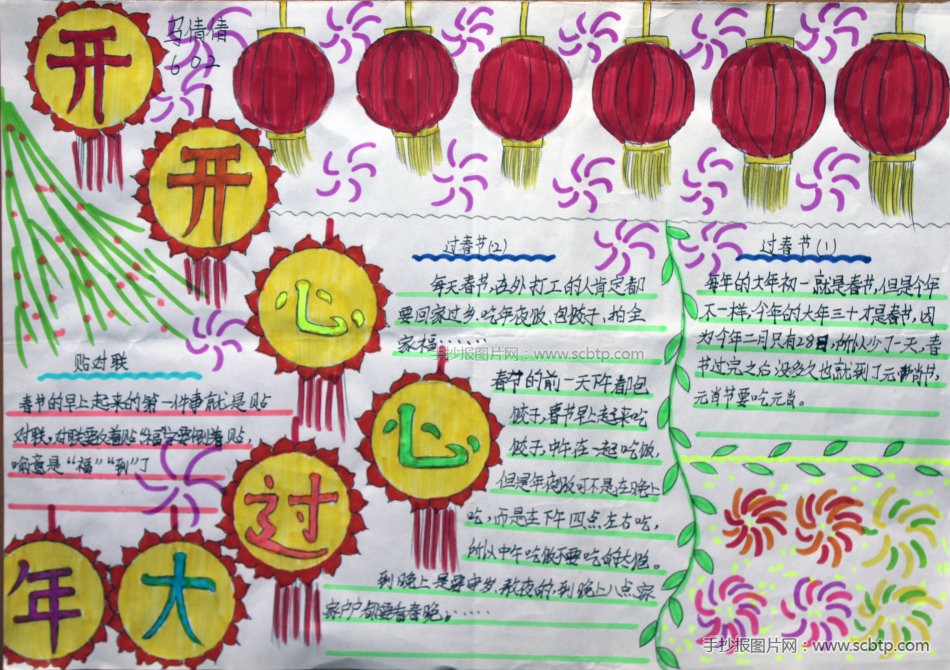 开
马倩倩
602
开
心
心
过
大
年
过春节(2)
每天春节,在外打工的人肯定都
要回家过乡,吃年夜饭、包饺子,拍全
家福……
手抄报图片网：www.scbtp.com
春节的前一天下午都包
饺子,春节早上起来吃
饺子,中午在一起吃饭,
但是年夜饭可不是在晚上
吃,而是在下午四点左右吃,
所以中午吃饭不要吃的太饱。
到晚上是要守岁、熬夜的,到晚上八点,家
家户户都要看春晚……
过春节(1)
每年的大年初一就是春节,但是今年
不一样,今年的大年三十才是春节,因
为今年二月只有28日,所以少了一天,春
节过完之后没多久也就到了元宵节,
元肖节要吃元肖。
贴对联
春节的早上起来的第一件事就是贴
对联,对联要放着贴“福”字要倒着贴
喻意是“福”“到”了
手抄报图片网：www.scbtp.com